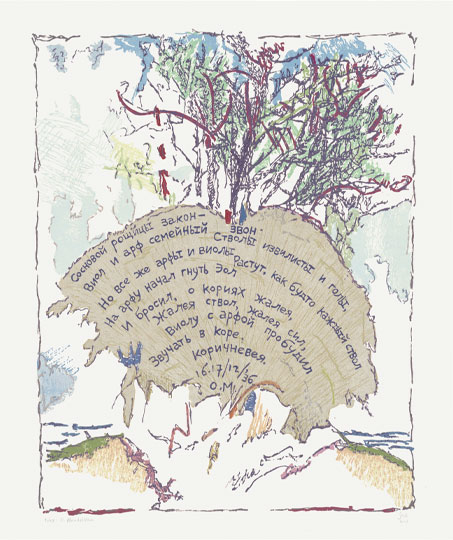 Сосновой рощицы закон–
Виол и арф семейный звон.
Стволы извилисты и голы,
Но все же арфы и виолы
Растут, как будто каждый ствол
На арфу начал гнуть Эол
И бросил, о корнях жалея,
Жалея ствол, жалея сил,
Виолу с арфой пробудил
Звучать в коре,
коричневея.
16.17/12/36
О.М.